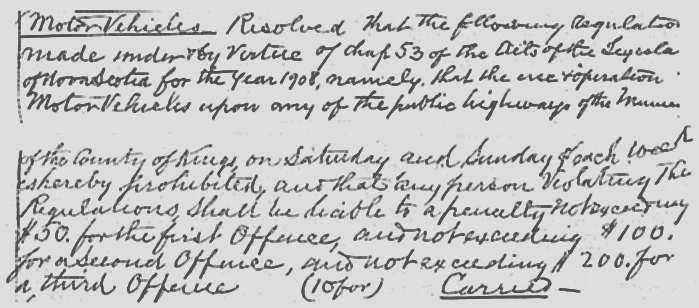 Motor Vehicles. Resolved that the following regulation
made under & by Virtue of chap 53 of the Acts of the Legisla
of Nova Scotia for the Year 1908, namely, that the use & operation
Motor Vehicles upon any of the public highways of the Munici
of the County of Kings, on Saturday and Sunday of each week
is hereby prohibited, and that any person Violating The
Regulations, shall be liable to a penalty not exceeding
$50. for the first Offence, and not exceeding $100.
for a second Offence, and not exceeding $200. for
a, third Offence (10 for) Carried —